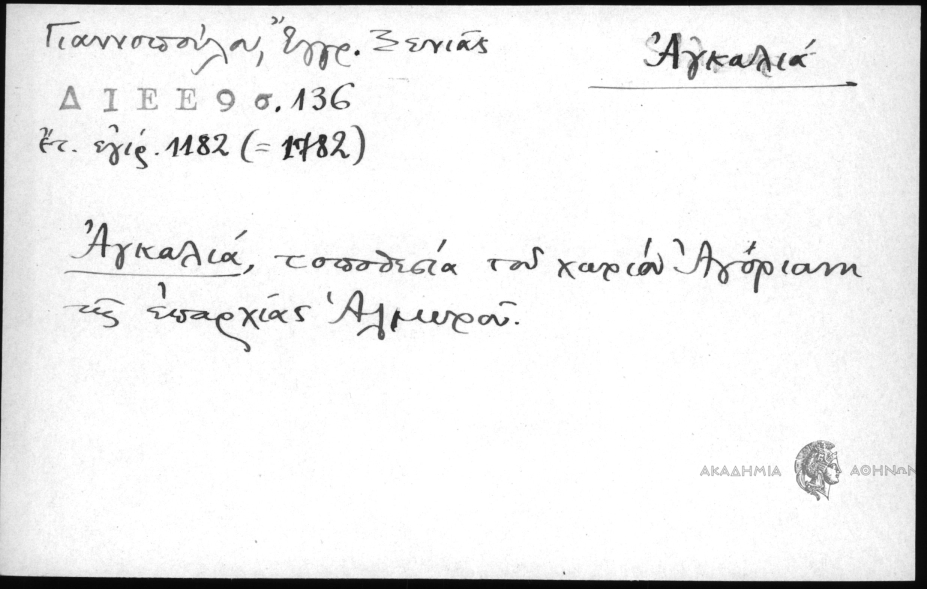 Γιαννοπούλου, Ἔγγρ. Ξενιᾶς
Ἀγκαλιά
ΔΙΕΕ 9 σ. 136
Ἔτ. ἐγίρ. 1182 (= 1782)
Ἀγκαλιά, τοποθεσία τοῦ χωριοῦ Ἀγόριανη
τῆς ἐπαρχίας Ἁλμυροῦ.
ΑΚΑΔΗΜΙΑ ΑΘΗΝΩΝ